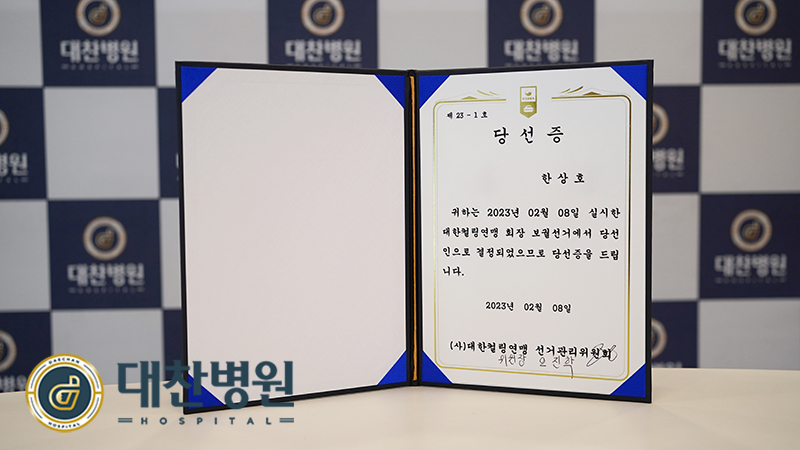 대찬병원
HOSPITAL
대찬병원
대찬병원
대찬병원
HOSPITAL
제 23 - 1 호
당 선 증
한 상 호
귀하는 2023년 02월 08일 실시한
대한컬링연맹 회장 보궐선거에서 당선
인으로 결정되었으므로 당선증을 드립
니다.
2023년 02월 08일
(사)대한컬링연맹 선거관리위원회
위원장 오진학
대찬병원
HOSPITAL
대찬병원
HOSPITAL
DAECHAN
HOSPITAL
대찬병원
HOSPITAL